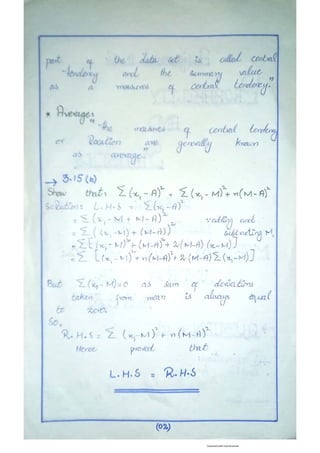 part of the data set is called central
-tendency and the summary value
as a measures of central tendency."
* Averages
"the measures of central tendency
or location are generally known
as average."
→ 3.15 (b)
Show that: Σ(xᵢ - A)² = Σ(xᵢ - M)² + n(M-A)²
Solution: L.H.S = Σ(xᵢ - A)²
= Σ(xᵢ - M + M - A)² adding and
= Σ((xᵢ - M) + (M-A))² subtracting M.
= Σ[(xᵢ - M)² + (M-A)² + 2(M-A)(x-M)]
= Σ[(xᵢ - M)² + n(M-A)² + 2(M-A)Σ(xᵢ-M)]
But Σ(xᵢ - M)=0 as sum of deviations
taken from mean is always equal
to zero.
So,
R.H.S = Σ(xᵢ-M)² + n(M-A)²
Hence proved that
L.H.S = R.H.S
(02)
Scanned with CamScanner